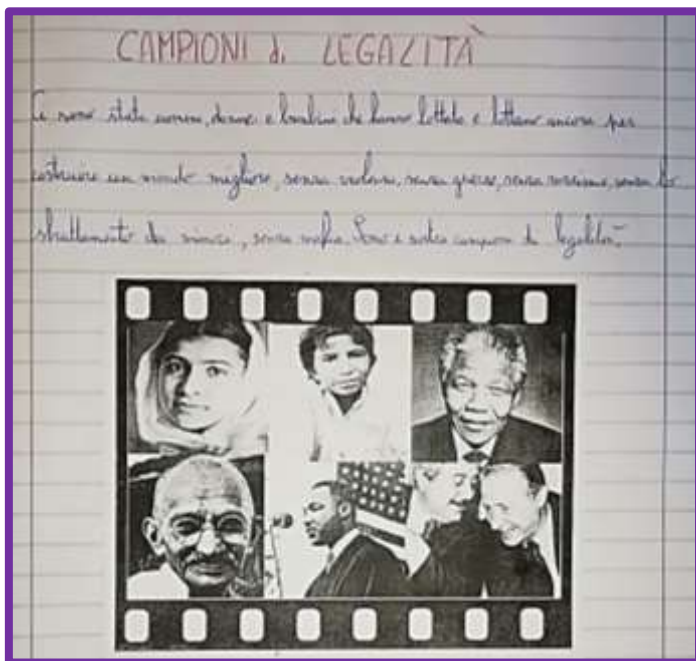 CAMPIONI di LEGALITÀ
Ci sono state uomini, donne e bambini che hanno lottato e lottano ancora per
costruire un mondo migliore, senza violenza, senza guerre, senza razzismo, senza lo
sfruttamento dei minori, senza mafia. Sono i nostri campioni di legalità.